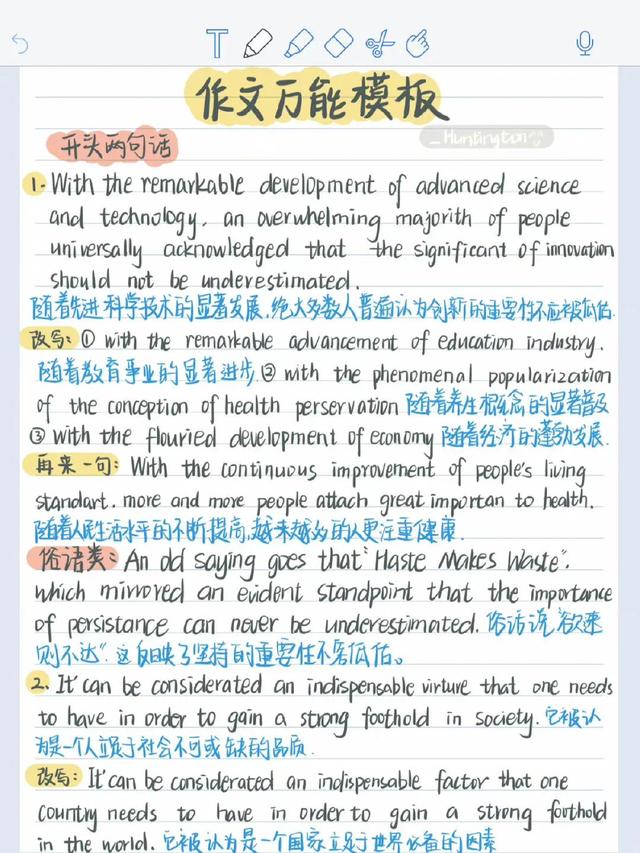 T
作文万能模板
_Huntington
开头两句话
1. With the remarkable development of advanced science
and technology, an overwhelming majorith of people
universally acknowledged that the significant of innovation
should not be underestimated.
随着先进科学技术的显著发展,绝大多数人普遍认为创新的重要性不应被低估.
改写: ① with the remarkable advancement of education industry.
随着教育事业的显著进步. ② with the phenomenal popularization
of the conception of health perservation 随着养生概念的显著普及
③ with the flouried development of economy 随着经济的蓬勃发展.
再来一句: With the continuous improvement of people's living
standart. more and more people attach great importan to health.
随着人民生活水平的不断提高,越来越多的人更注重健康.
俗语类: An old saying goes that "Haste Makes Waste".
which mirrored an evident standpoint that the importance
of persistance can never be underestimated. 俗话说"欲速
则不达". 这反映了坚持的重要性不容低估。
2. It can be considerated an indispensable virture that one needs
to have in order to gain a strong foothold in society. 它被认
为是一个人立足于社会不可或缺的品质.
改写: It can be considerated an indispensable factor that one
country needs to have in order to gain a strong foothold
in the world. 它被认为是一个国家立足于世界必备的因素